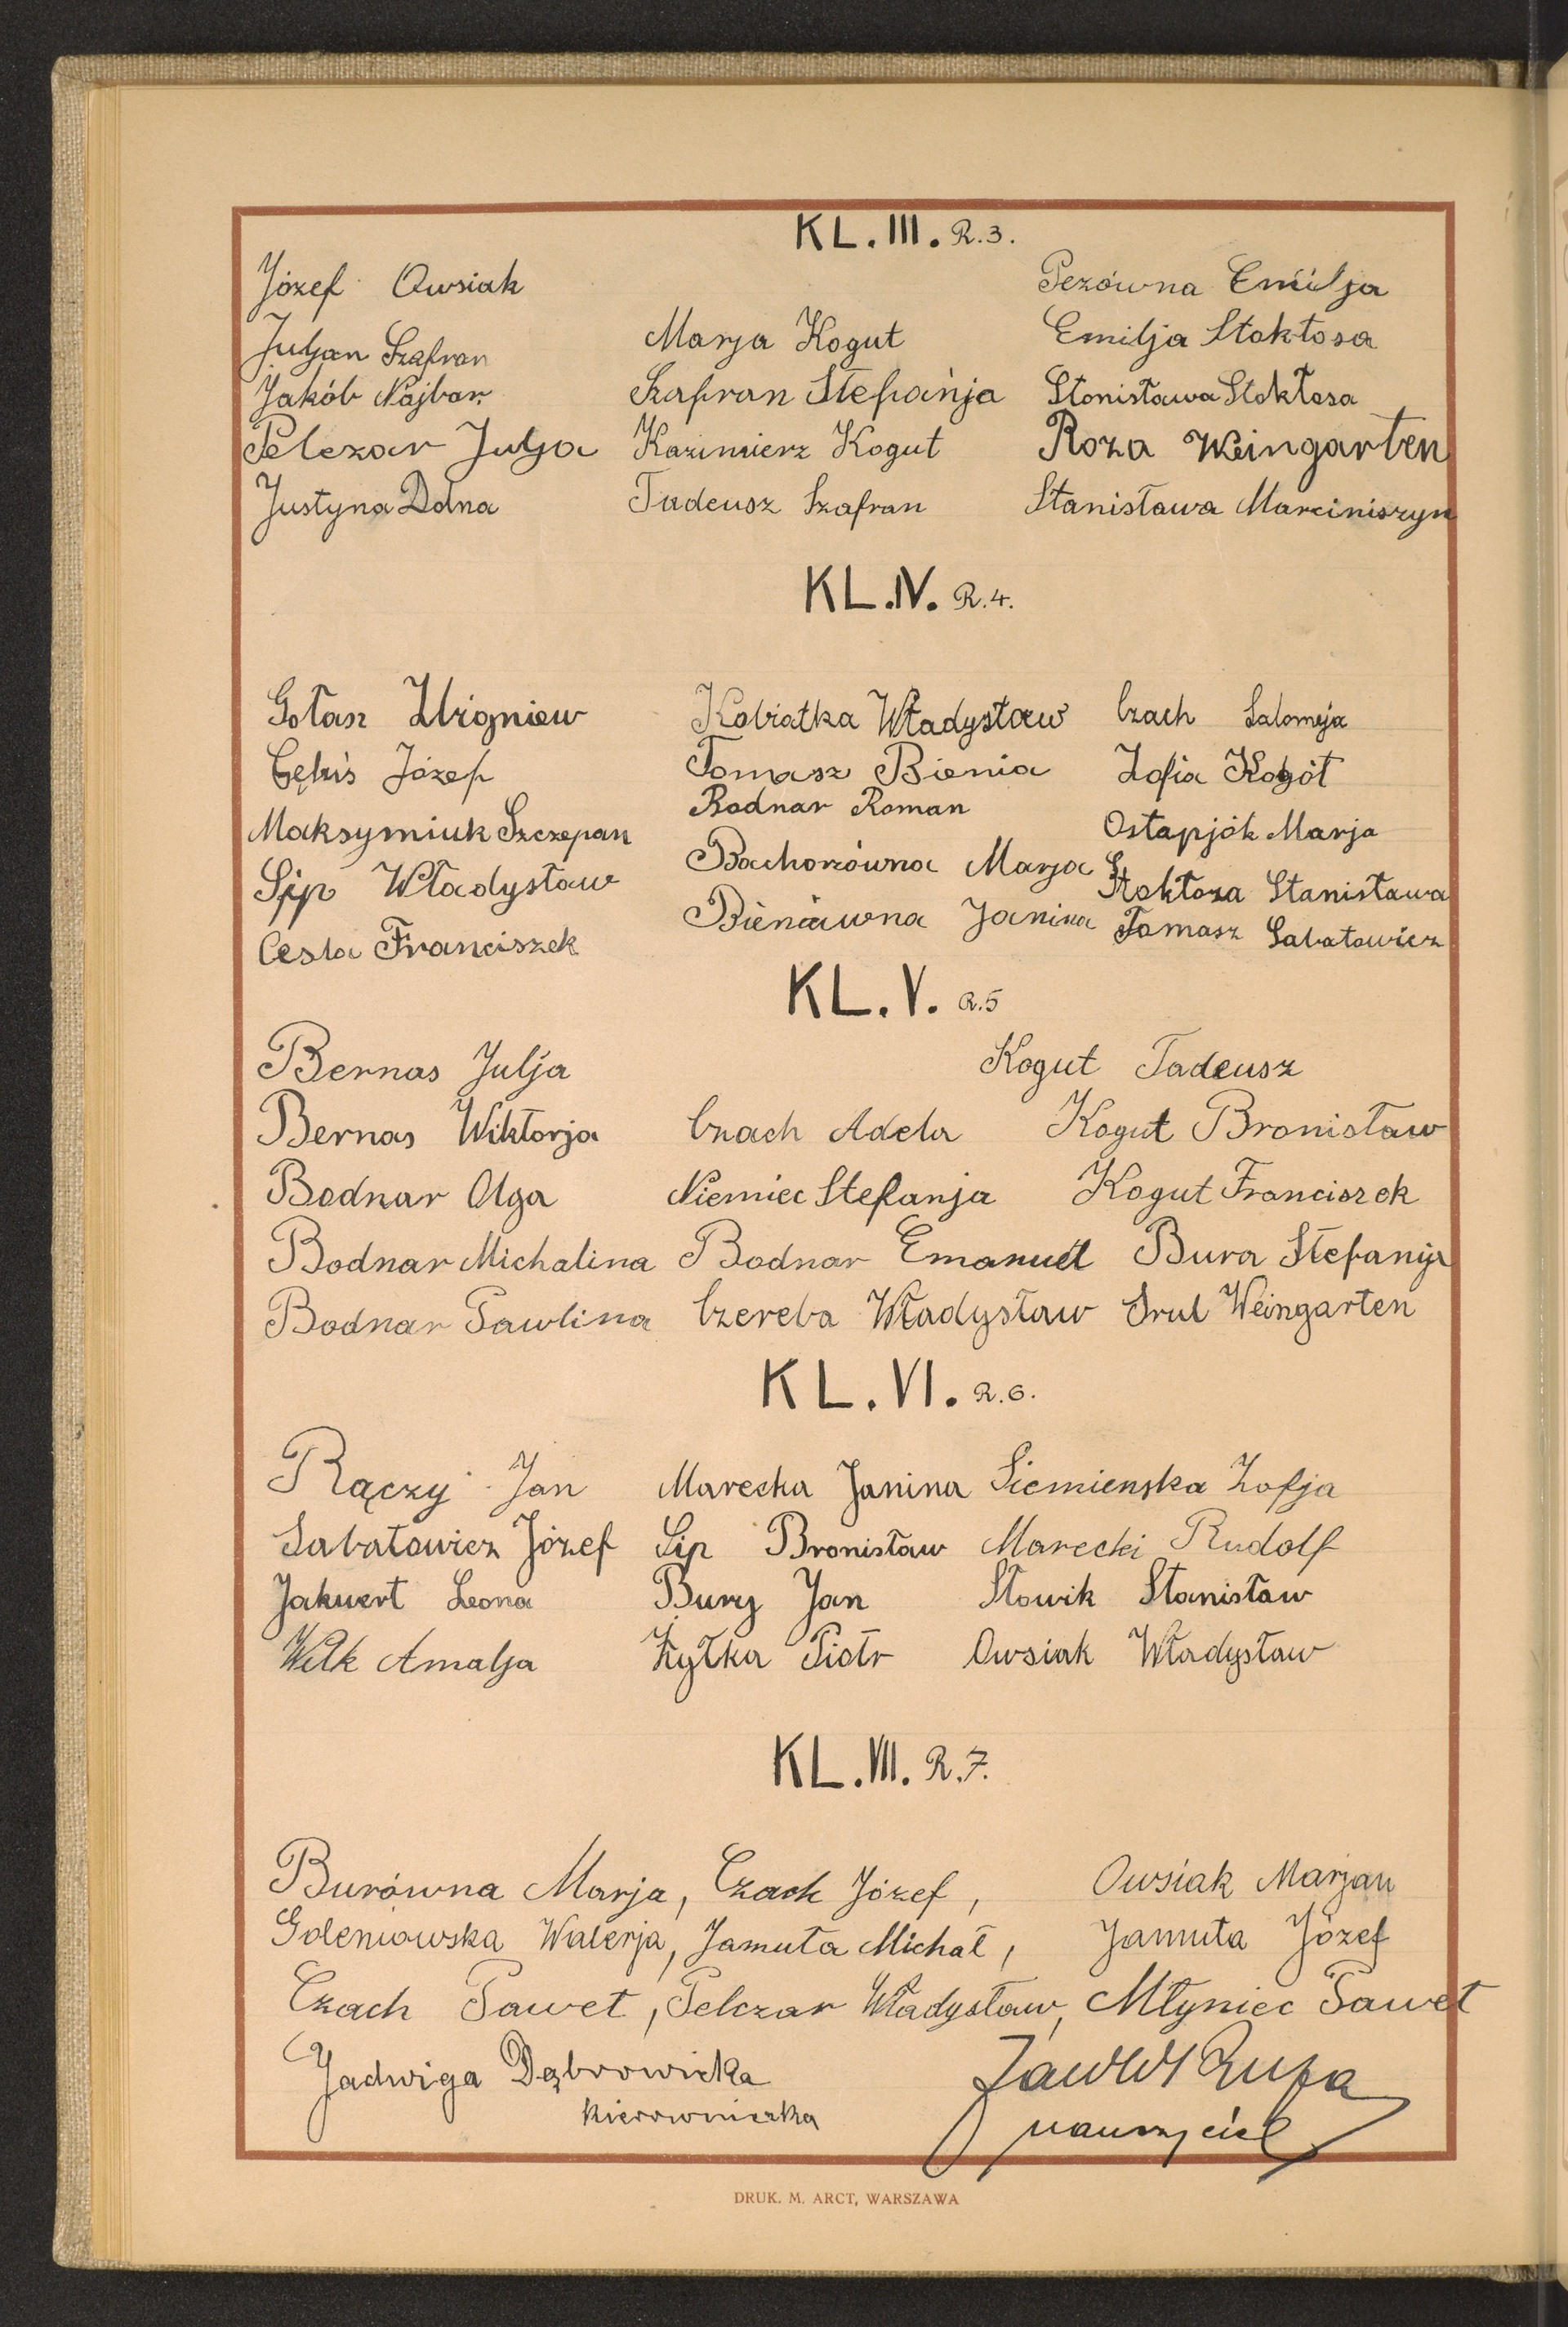 KL. III. R.3.
Józef Owsiak
Pezówna Emilja
Juljan Szafran Marja Kogut Emilja Stokłosa
Jakób Najbar Szafran Stefanja Stanisława Stokłosa
Pelczar Julja Kazimierz Kogut Roza Weingarten
Justyna Dolna Tadeusz Szafran Stanisława Marciniszyn
KL. IV. R.4.
Gołasz Zbigniew Kobiałka Władysław Czach Salomeja
Józef Tomasz Bienia Zofia Kogót
Maksymiuk Szczepan Bodnar Roman Ostapjók Marja
Sip Władysław Bachorzówna Marja Stokłosa Stanisława
Cesla Franciszek Bieniawna Janina Tomasz Sabatowicz
KL. V. R.5
Bernas Julja Kogut Tadeusz
Bernas Wiktorja Czach Adela Kogut Bronisław
Bodnar Olga Niemiec Stefanja Kogut Franciszek
Bodnar Michalina Bodnar Emanuel Bura Stefanija
Bodnar Pawlina Czereba Władysław Srul Weingarten
KL. VI. R.6.
Rączy Jan Marecka Janina Siemienska Zofja
Sabatowicz Józef Sip Bronisław Marecki Rudolf
Jakuert Leona Bury Jan Słowik Stanisław
Wilk Amalja Żyłka Piotr Owsiak Władysław
KL. VII. R.7.
Burówna Marja, Czach Józef, Owsiak Marjan
Goleniowska Walerja, Jamuła Michał, Jamuła Józef
Czach Paweł, Pelczar Władysław, Młyniec Paweł
Jadwiga Dąbrowicka
kierowniczka
Paweł Rupa
nauczyciel
DRUK. M. ARCT, WARSZAWA